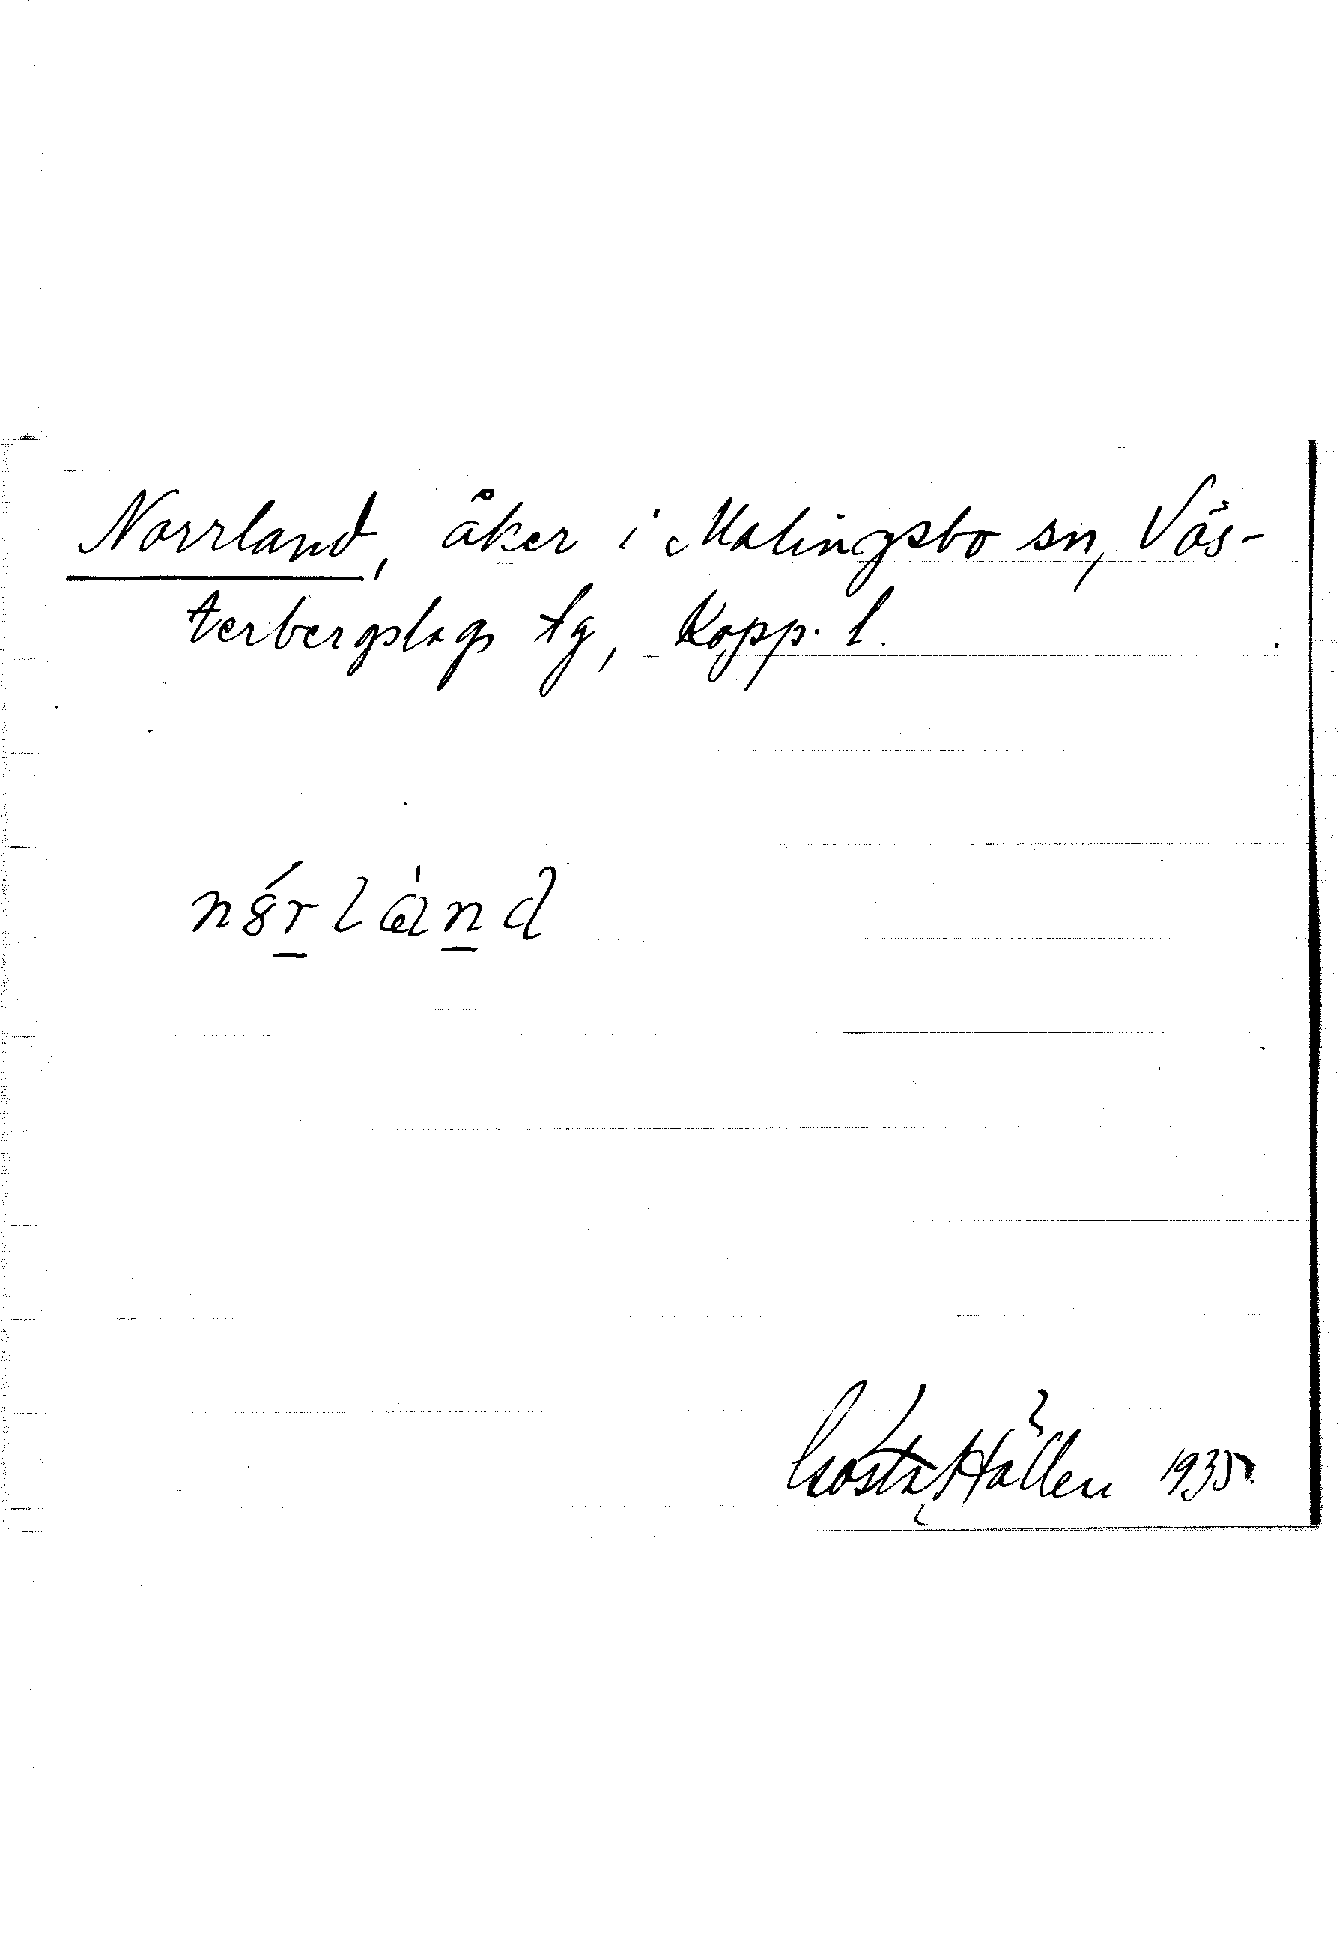 Norrland, åker i Malingsbo sn, Väs-
terbergslags tg, Kopp. l.
nǿr lànd
Gösta Hallén 1935.